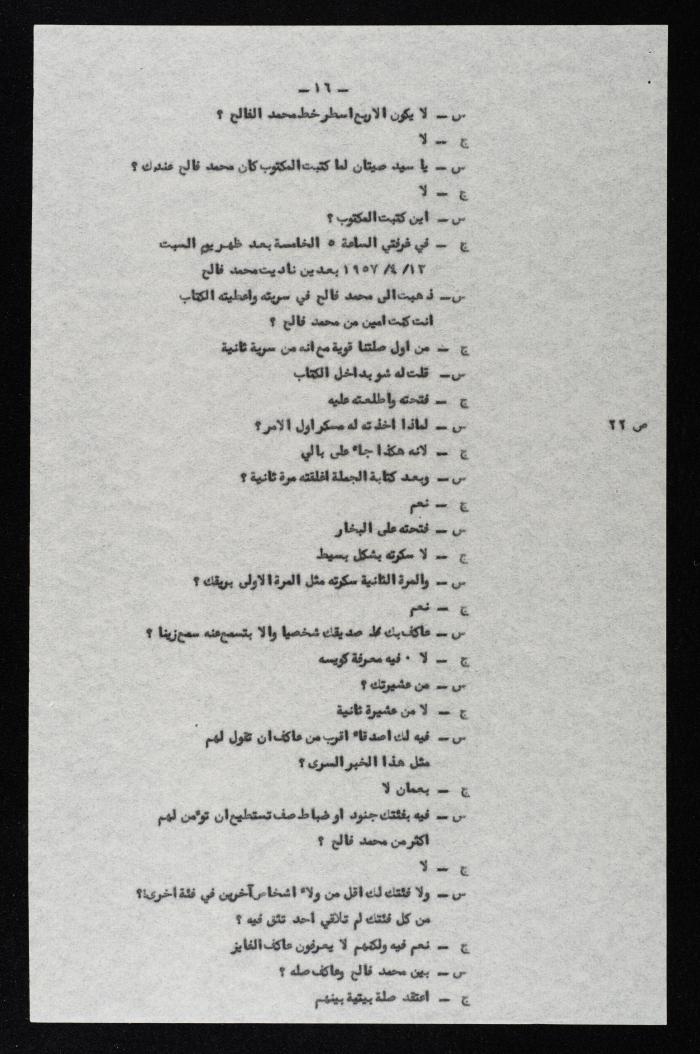 - ١٦ -
س - لا يكون الاربع اسطر خط محمد الفالح ؟
ج - لا
س - يا سيد صيتان لما كتبت المكتوب كان محمد فالح عندك ؟
ج - لا
س - اين كتبت المكتوب ؟
ج - في غرفتي الساعة ٥ الخامسة بعد ظهر يوم السبت
١٣/ ٤/ ١٩٥٧ بعدين ناديت محمد فالح
س - ذهبت الى محمد فالح في سريته واعطيته الكتاب
انت كنت امين من محمد فالح ؟
ج - من اول صلتنا قوية مع انه من سرية ثانية
س - قلت له شو بداخل الكتاب
ج - فتحته واطلعته عليه
س - لماذا اخذته له مسكر اول الامر ؟
ص ٢٢
ج - لانه هكذا جاء على بالي
س - وبعد كتابة الجملة اغلقته مرة ثانية ؟
ج - نعم
س - فتحته على البخار
ج - لا سكرته بشكل بسيط
س - والمرة الثانية سكرته مثل المرة الاولى بريقك ؟
ج - نعم
س - عاكف بك صديقك شخصيا والا بتسمع عنه سمع زينا ؟
ج - لا ٠ فيه معرفة كويسه
س - من عشيرتك ؟
ج - لا من عشيرة ثانية
س - فيه لك اصدقاء اقرب من عاكف ان تقول لهم
مثل هذا الخبر السرى ؟
ج - بعمان لا
س - فيه بفئتك جنود او ضباط صف تستطيع ان تؤمن لهم
اكثر من محمد فالح ؟
ج - لا
س - ولا فئتك لك اقل من ولاء اشخاص آخرين في فئة اخرى!؟
من كل فئتك لم تلاقي احد تثق فيه ؟
ج - نعم فيه ولكنهم لا يعرفون عاكف الفايز
س - بين محمد فالح وعاكف صله ؟
ج - اعتقد صلة بيتية بينهم